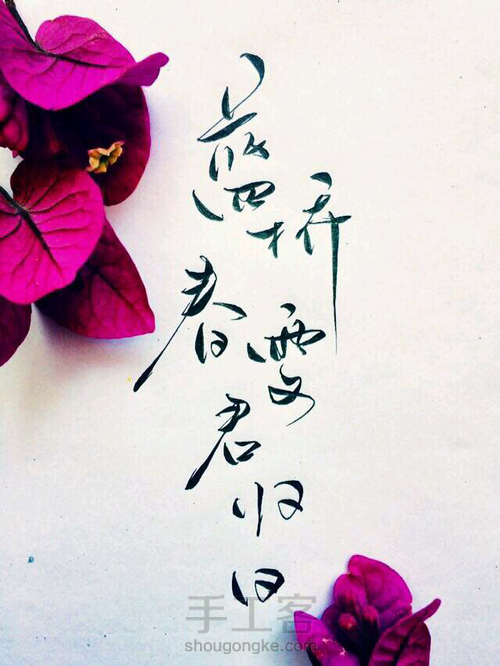 蓝桥春雪君归日
手工客
shougongke.com